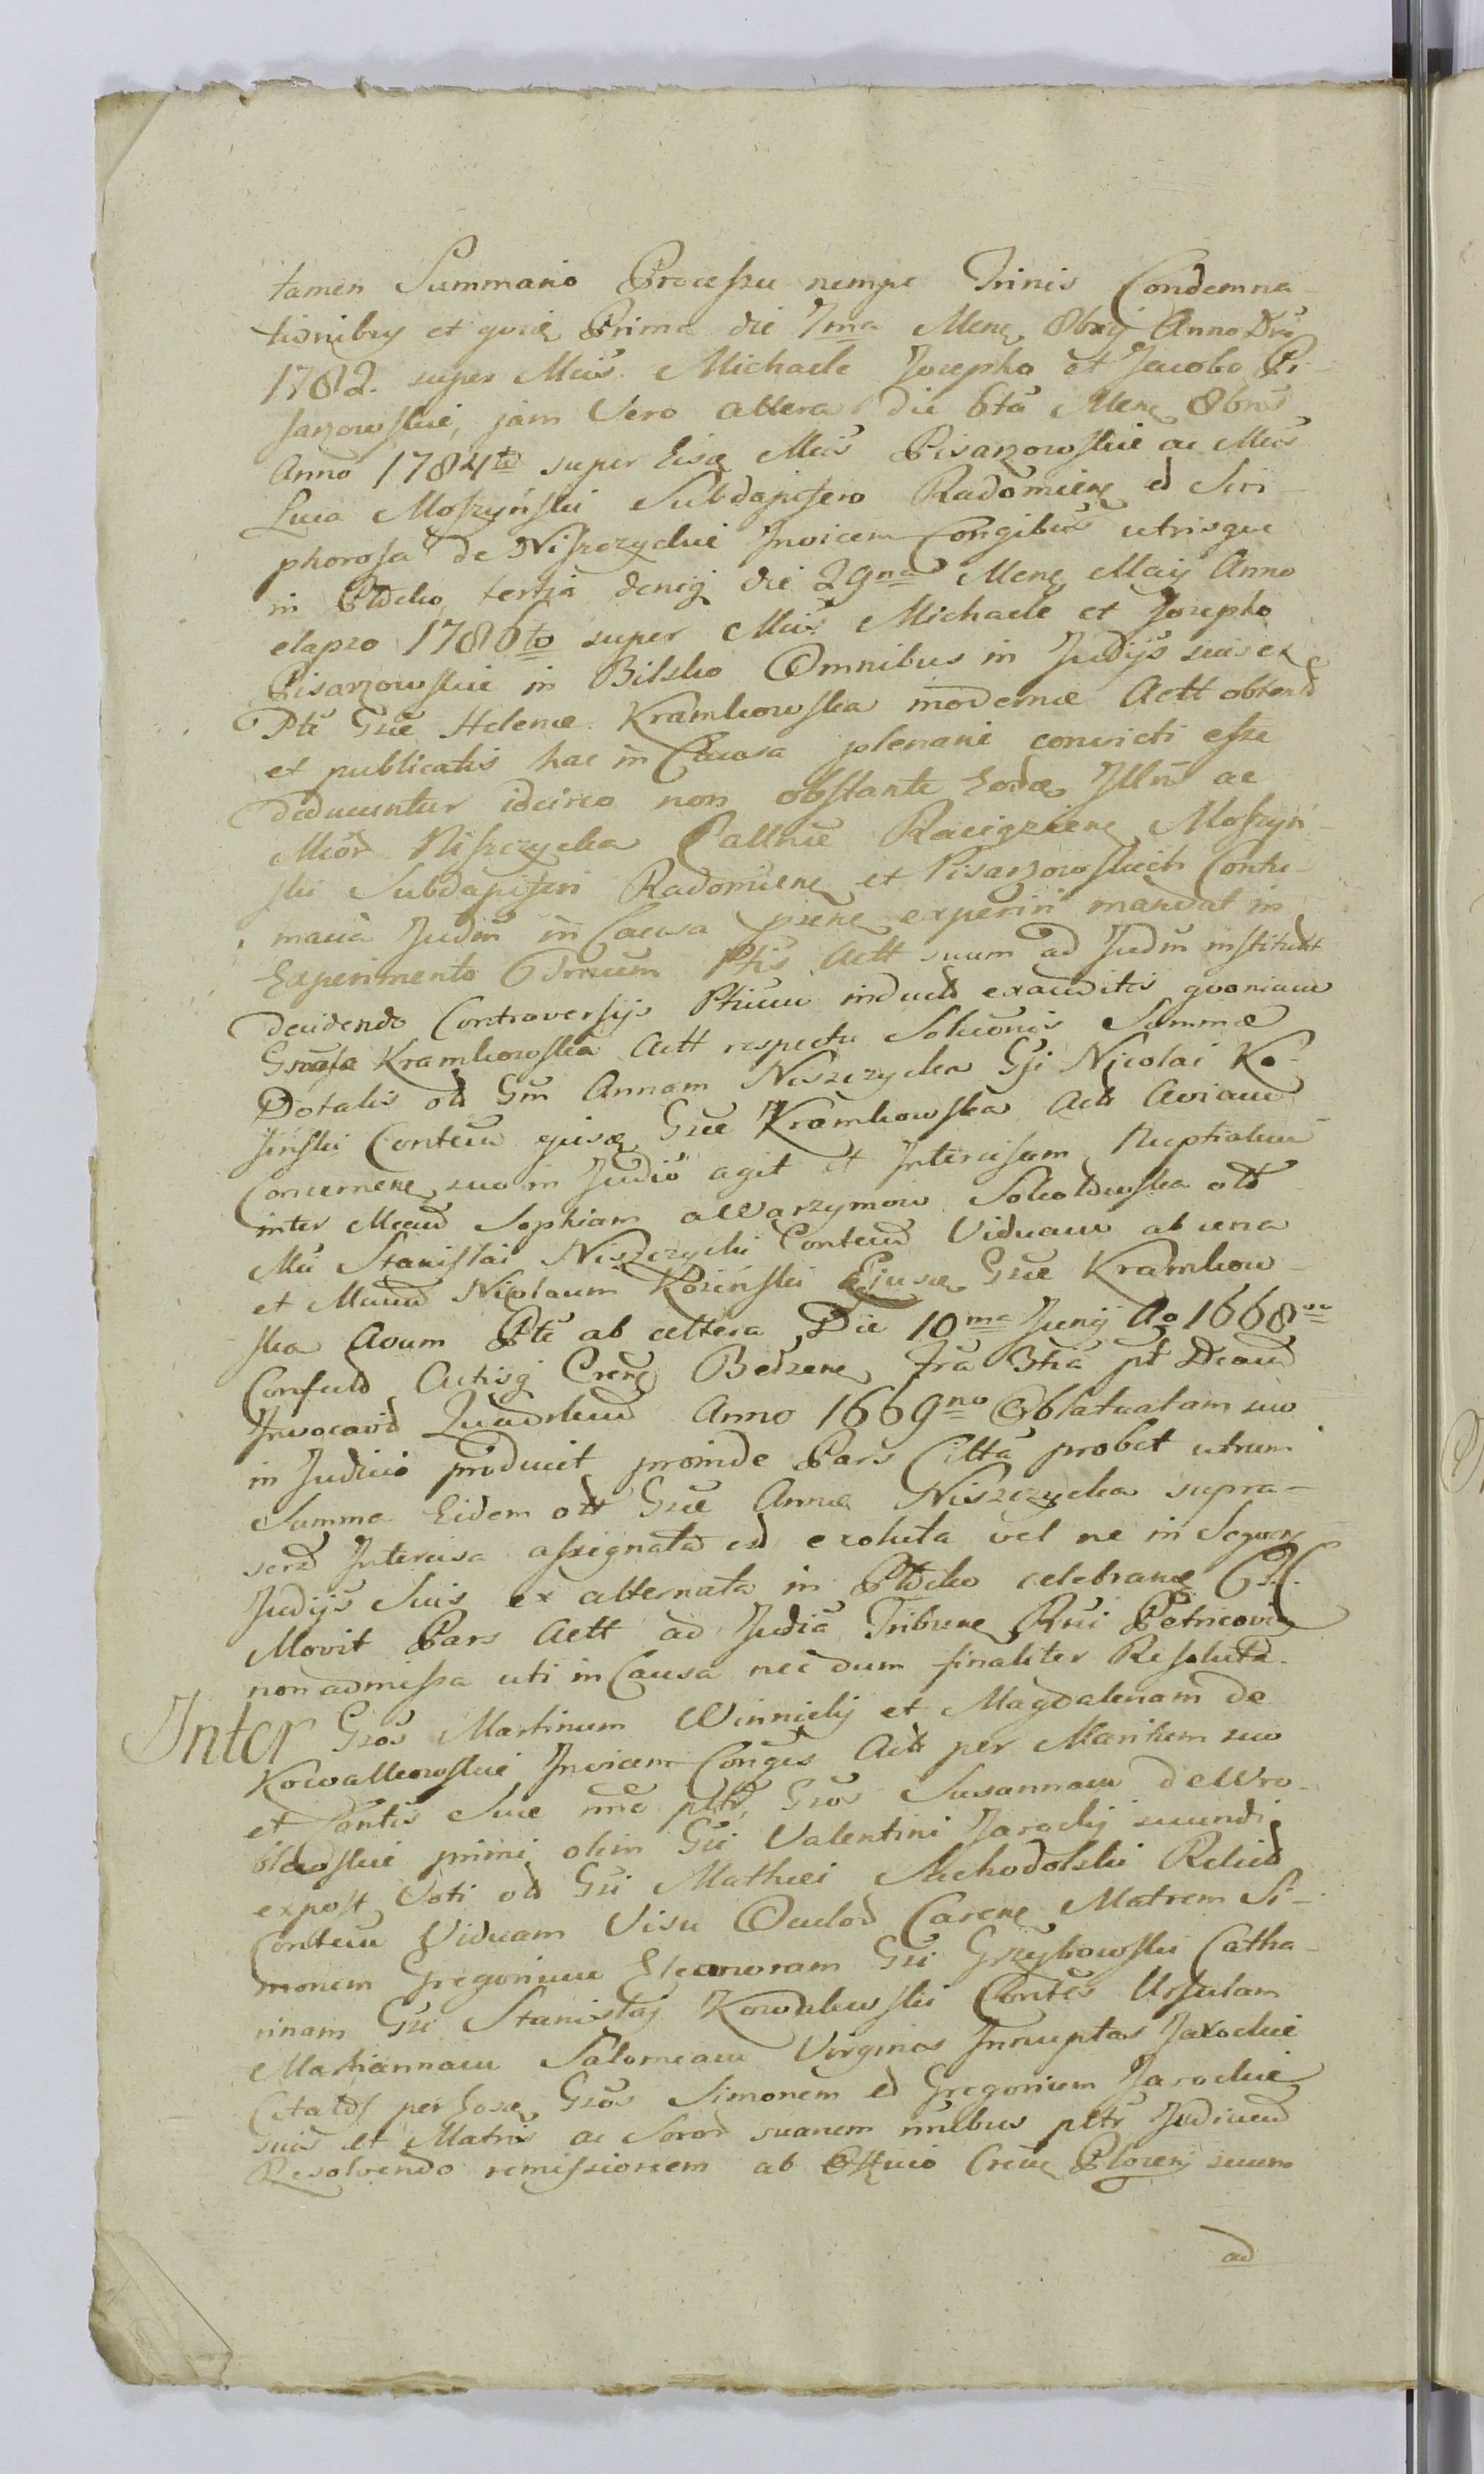 tamen Summario Processu nempe Trinis Condemna-
tionibus et quidē Prima die 7ma Mene 8bris Anno Dni
1782. super Mcis Michaele Josepho et Jacobo Pi-
sarzowskie, jam Vero altera die 6ta Mene 8bris
Anno 1784to super Eisdē Mcis Pisarzowskie ac Mcis
Luca Moszyński Subdapifero Radomiene et Siri-
phorosa de Niszczyckie Invicem Congibus utrisque
in Płocko, tertia deniq die 29na Mene Maij Anno
elapso 1786to super Mcis Michaele et Josepho
Pisarzowskie in Bilsko Omnibus in Judijs suis ex
Pte Gsae Helenae Kramkowska modernae Actt obtentis
et publicatis hac in Causa plenarie convicti esse
deducuntur idcirco non obstante Eordae Illm ac
Mcor Niszczycka Callnae Raciązene Moszyń-
ski Subdapiferi Radomiene et Pisarzowskich Contu-
macia Judm in Causa psene experiri mandat in
Experimento Terminum Ptis Actt suum ad Judm instituti
decidendo Controversijs Ptium inductis exauditis quoniam
Gnosa Kramkowska Actt respectu Solucionis Summae
Dotalis olt Gm Annam Niszczycka Gsi Nicolai Ko-
siński Contem ejusdae Gsae Kramkowska Actt Aviam
Concernene suo in Judio agit et Intercisam Nuptialem
inter Mcam Sophiam a Warzymow Sokołowska olt
Mci Stanislai Niszczycki Contem Viduam ab una
et Mcum Nicolaum Kosiński Ejusdae Gsae Kramkow-
ska Avum Pte ab altera Die 10ma Junij Ao 1668vo
Confectā Actisq Crene Bedzene fra 3tia pt Dcam
Invocavit Quadrlem Anno 1669no Oblatuatam suo
in Judicio producit proinde Pars Citta probet utrum
Summa Eidem olt Gsae Annae Niszczycka supra-
scrd Intercisa assignata est exoluta vel ne in Seqven
Judijs Suis ex alternata in Płocko celebrane
Movit Pars Actt ad Judia Tribune Rni Petricovie
non admissa uti in Causa nec dum finaliter Resoluta.
Inter Gsos Martinum Winnicki et Magdalenam de
Kowalkowskie Invicem Conges Actt per Maritum suo
et Contis Suae nne pltr Gsos Susannam de Wro-
blewskie primi olim Gsi Valentini Jarocki secundi
expost Voti olt Gsi Mathiei Suchodolski Relict
Contem Viduam Visu Oculor Carene Matrem Si-
monem Gregorium Eleonoram Gsi Grzybowski Catha-
rinam Gsi Stanislaj Kowalewski Contes Ursulam
Mariannam Salomeam Virgines Innuptas Jarockie
Citatos per hosdae Gsos Simonem et Gregorium Jarockie
suis et Matris ac Soror suarum nnibus pltr Judicium
Resolvendo remissionem ab Officio Crene Plocen suum
ad